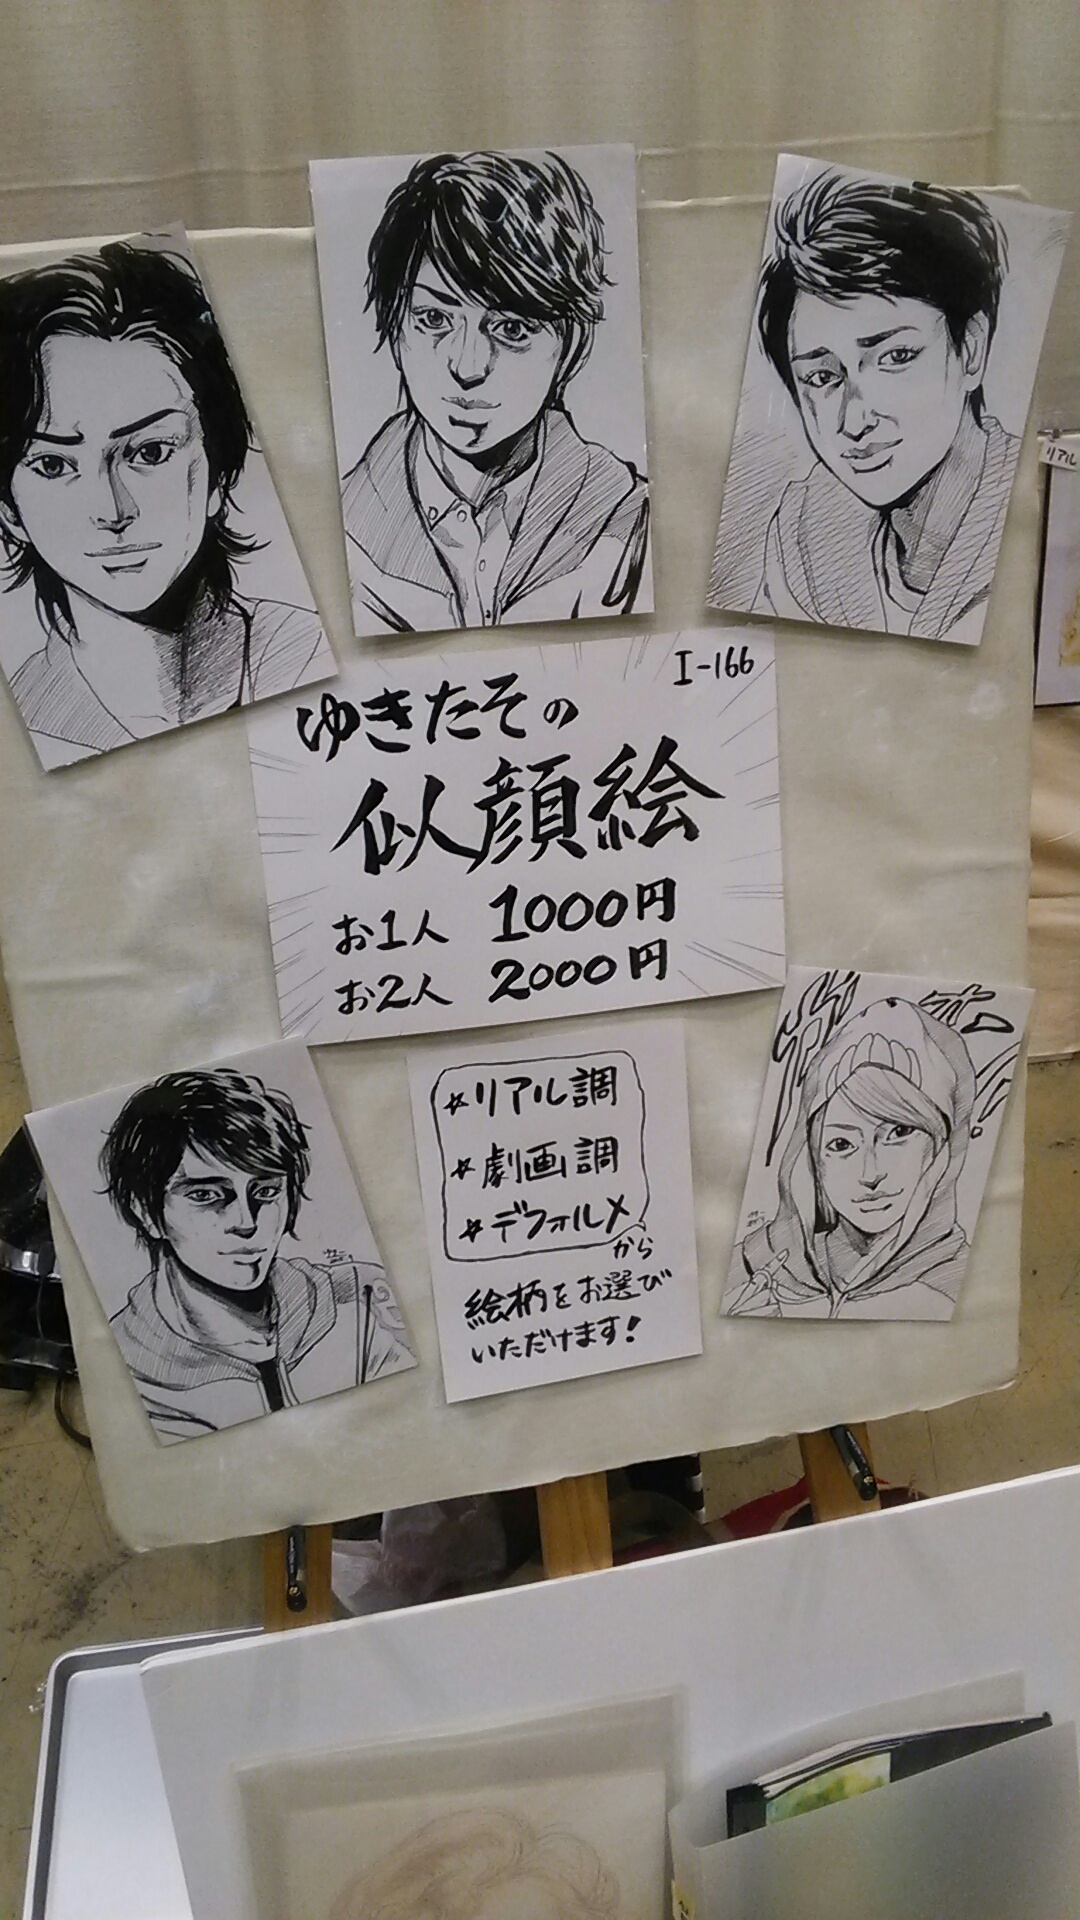 リアル
I-166
ゆきたその
似顔絵
お1人 1000円
お2人 2000円
☆リアル調
☆劇画調
☆デフォルメ
から
絵柄をお選び
いただけます!